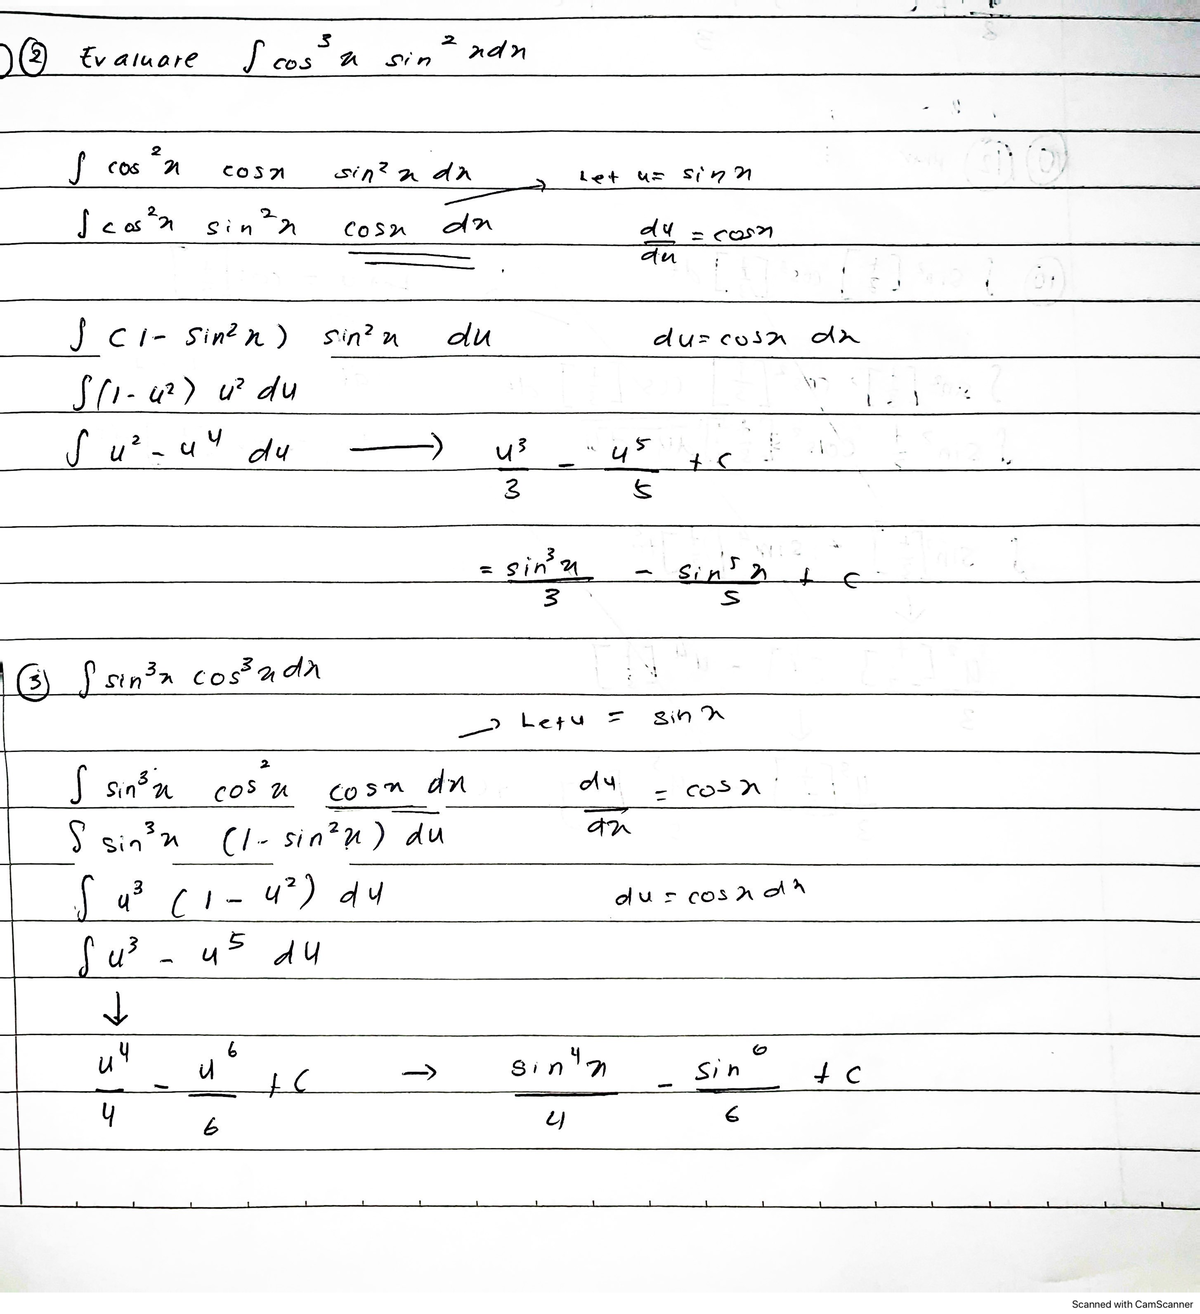 ② Evaluare ∫ cos³ x sin² xdx
∫ cos²x cosx sin² x dx → Let u= sin x
∫ cos²x sin²x cosx dx du/du = cosx
∫ (1- sin²x) sin²x du du= cosx dx
∫(1-u²) u² du
∫ u² - u⁴ du → u³/3 - u⁵/5 + c
= sin³x/3 - sin⁵x/5 + c
③ ∫ sin³x cos³xdx
→ Let u = sin x
∫ sin³x cos²x cosx dx du/dx = cosx
∫ sin³x (1- sin²x) du
∫ u³ (1 - u²) du du = cosx dx
∫ u³ - u⁵ du
↓
u⁴/4 - u⁶/6 + c → sin⁴x/4 - sin⁶/6 + c
Scanned with CamScanner